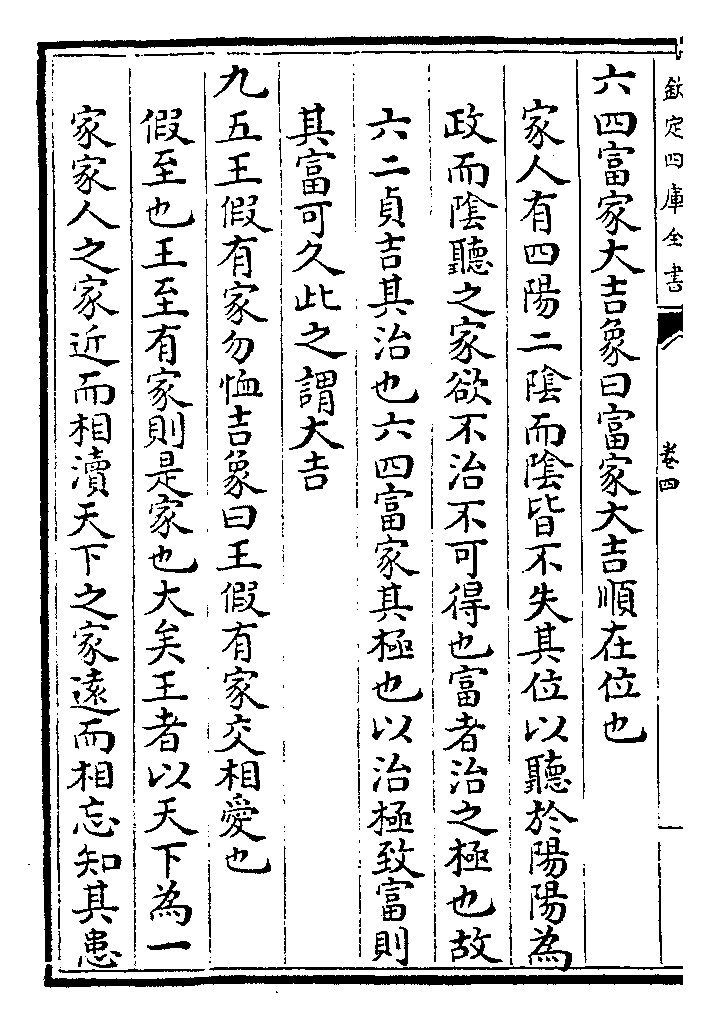 欽定四庫全書
卷四
六四富家大吉象曰富家大吉順在位也
家人有四陽二陰而陰皆不失其位以聽於陽陽為
政而陰聽之家欲不治不可得也富者治之極也故
六二貞吉其治也六四富家其極也以治極致富則
其富可久此之謂大吉
九五王假有家勿恤吉象曰王假有家交相愛也
假至也王至有家則是家也大矣王者以天下為一
家家人之家近而相瀆天下之家遠而相忘知其患